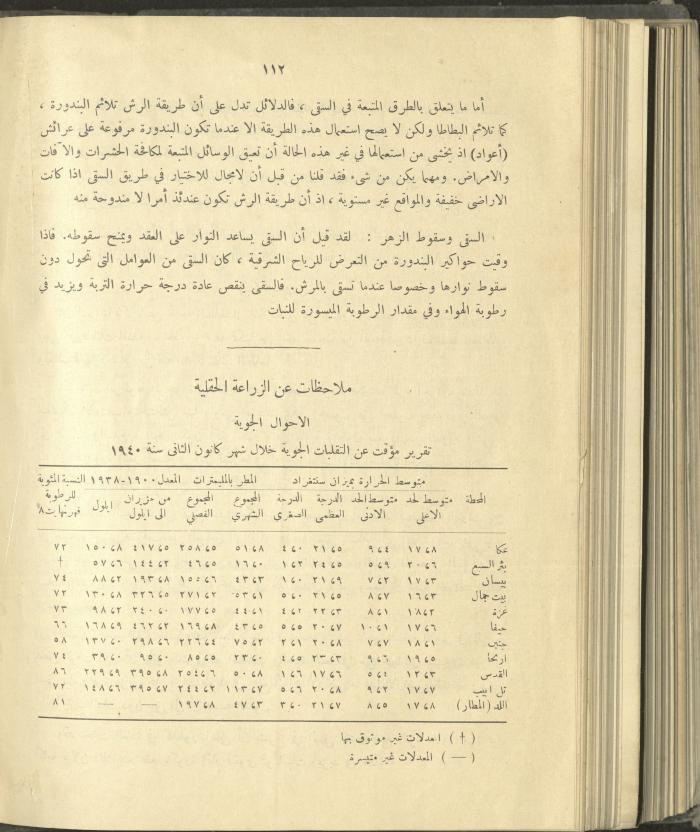 ١١٢
أما ما يتعلق بالطرق المتبعة في السقى ، فالدلائل تدل على أن طريقة الرش تلائم البندورة ،
كما تلائم البطاطا ولكن لا يصح استعمال هذه الطريقة الا عندما تكون البندورة مرفوعة على عرائش
(أعواد) اذ يخشى من استعمالها في غير هذه الحالة أن تعيق الوسائل المتبعة لمكافحة الحشرات والآفات
والامراض. ومهما يكن من شىء فقد قلنا من قبل أن لامجال للاختيار في طريق السقى اذا كانت
الاراضى خفيفة والمواقع غير مستوية ، اذ أن طريقة الرش تكون عندئذ أمرا لا مندوحة منه
السقى وسقوط الزهر : لقد قيل أن السقى يساعد النوار على العقد ويمنح سقوطه. فاذا
وقيت حواكير البندورة من التعرض للرياح الشرقية ، كان السقى من العوامل التى تحول دون
سقوط نوارها وخصوصا عندما تسقى بالمرش. فالسقى ينقص عادة درجة حرارة التربة ويزيد في
رطوبة الهواء وفي مقدار الرطوبة الميسورة للنبات
ملاحظات عن الزراعة الحقلية
الاحوال الجوية
تقرير مؤقت عن التقلبات الجوية خلال شهر كانون الثانى سنة ١٩٤٠
متوسط الحرارة بميزان سنتغراد المطر بالمليمترات المعدل ١٩٠٠-١٩٣٨ النسبة المئوية
المحطة متوسط لحد الاعلى متوسط الحد الادنى الدرجة العظمى الدرجة الصغرى المجموع الشهري المجموع الفصلي من حزيران الى ايلول ايلول للرطوبة
عكا ١٧٬٨ ٩٬٤ ٢١٬٥ ٤٬٠ ٥١٬٨ ٢٥٨٬٥ ٤١٧٬٥ ١٥٠٬٨ ٧٢
بئر السبع ٢٠٬٦ ٥٬٩ ٢٤٬٥ ١٬٢ ١٦٬٠ ٤٦٬٥ ١٤٤٬٢ ٥٧٬٦ †
بيسان ١٧٬٣ ٧٬٢ ٢١٬٩ ١٬٠ ٤٣٬٣ ١٥٥٬٦ ١٩٣٬٨ ٨٨٬٢ ٧٤
بيت جمال ١٦٬٣ ٨٬٧ ٢١٬٥ ٥٬٠ ٥٣٬١ ٢٧١٬٢ ٣٢٦٬٥ ١٣٠٬٨ ٧٢
غزة ١٨٬٢ ٨٬١ ٢٢٬٣ ٤٬٢ ٤٤٬١ ١٧٧٬٥ ٢٤٠٬٠ ٩٨٬٢ ٧٣
حيفا ١٧٬٦ ١٠٬١ ٢٠٬٧ ٥٬٥ ٤٣٬٥ ١٦٩٬٨ ٤٦٢٬٢ ١٦٨٬٩ ٦٦
جنين ١٨٬١ ٧٬٧ ٢٠٬٨ ٢٬١ ٧٥٬٢ ٢٢٦٬٤ ٢٩٨٬٦ ١٣٧٬٠ ٥٨
اريحا ١٩٬٥ ٩٬٦ ٢٣٬٣ ٤٬٥ ٢٣٬٠ ٨٥٬٥ ٩٥٬٠ ٣٩٬٠ ٧٤
القدس ١٢٬٣ ٥٬٤ ١٧٬٦ ١٬٦ ٥٠٬٨ ٢٥٤٬٦ ٣٩٥٬٨ ٢٢٩٬٩ ٨٦
تل ابيب ١٧٬٧ ٩٬٢ ٢٠٬٨ ٥٬٦ ١١٣٬٧ ٢٤٤٬٢ ٣٩٥٬٧ ١٤٨٬٦ ٧٢
اللد (المطار) ١٧٬٨ ٨٬٥ ٢١٬٧ ٣٬٠ ٤٧٬٣ ١٩٧٬٨ — — ٨١
( † ) المعدلات غير موثوق بها
( — ) المعدلات غير متيسرة